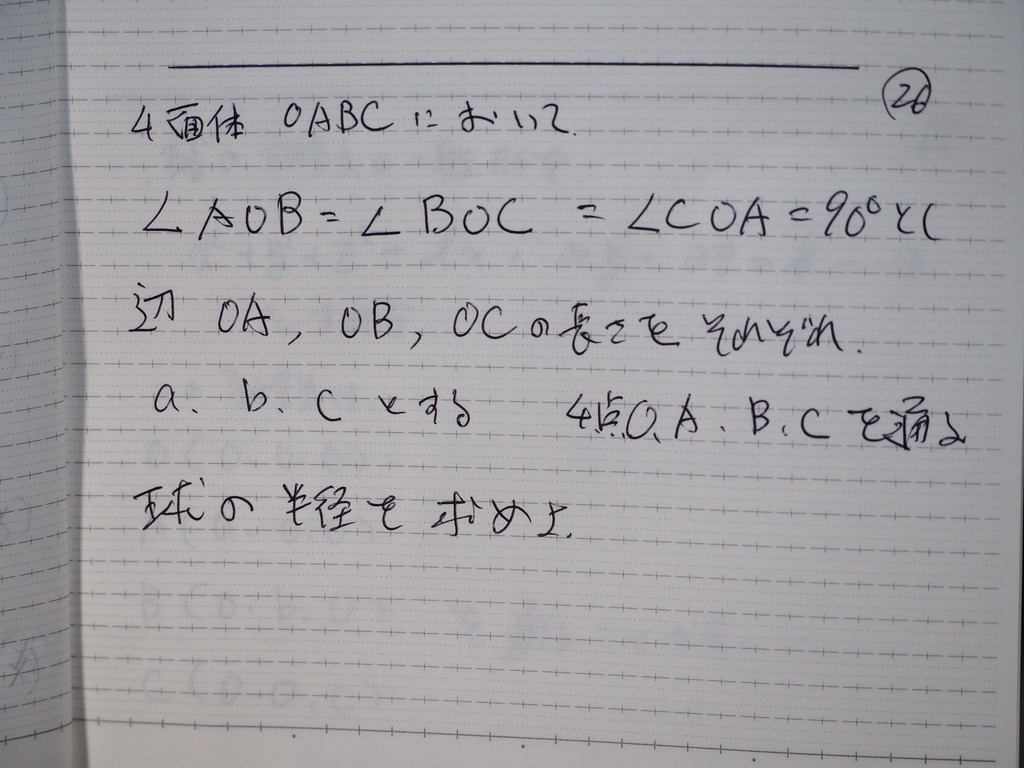 26
4面体 OABC において
∠AOB = ∠BOC = ∠COA = 90°とし
辺 OA, OB, OCの長さを それぞれ.
a. b. c とする 4点O. A. B. C を通る
球の半径を求めよ.